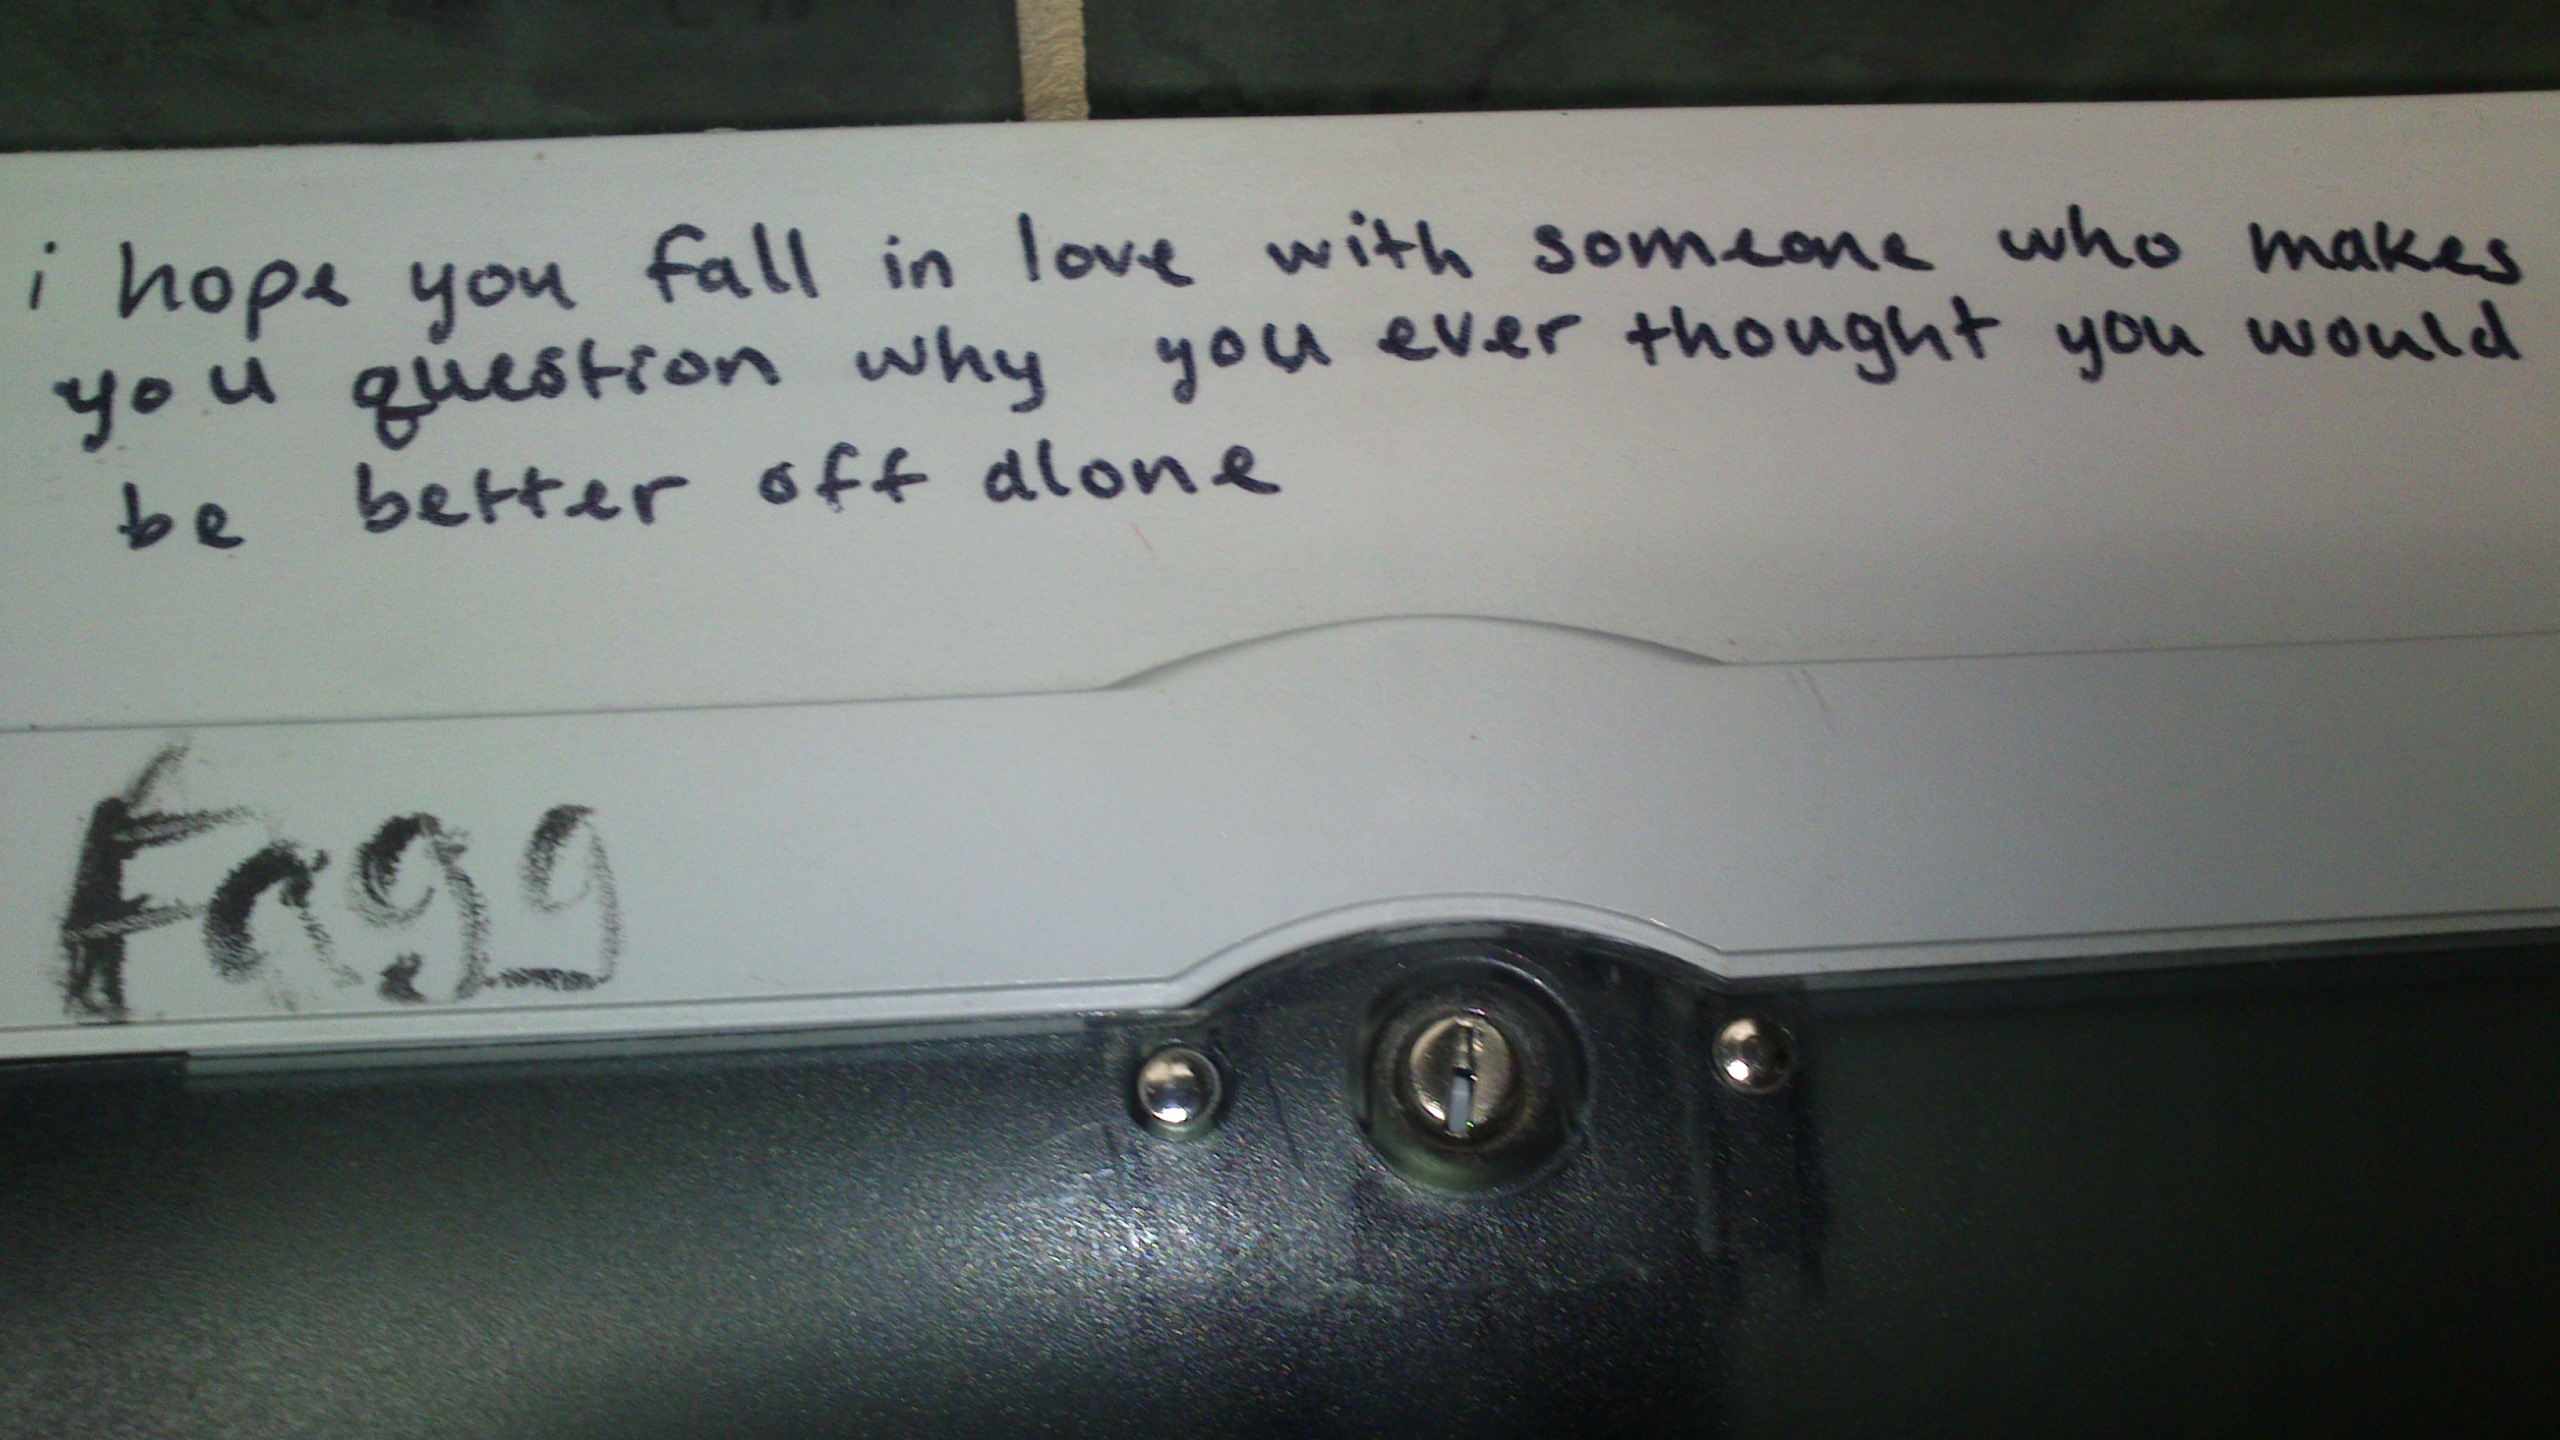 i hope you fall in love with someone who makes
you question why you ever thought you would
be better off alone
Fagg